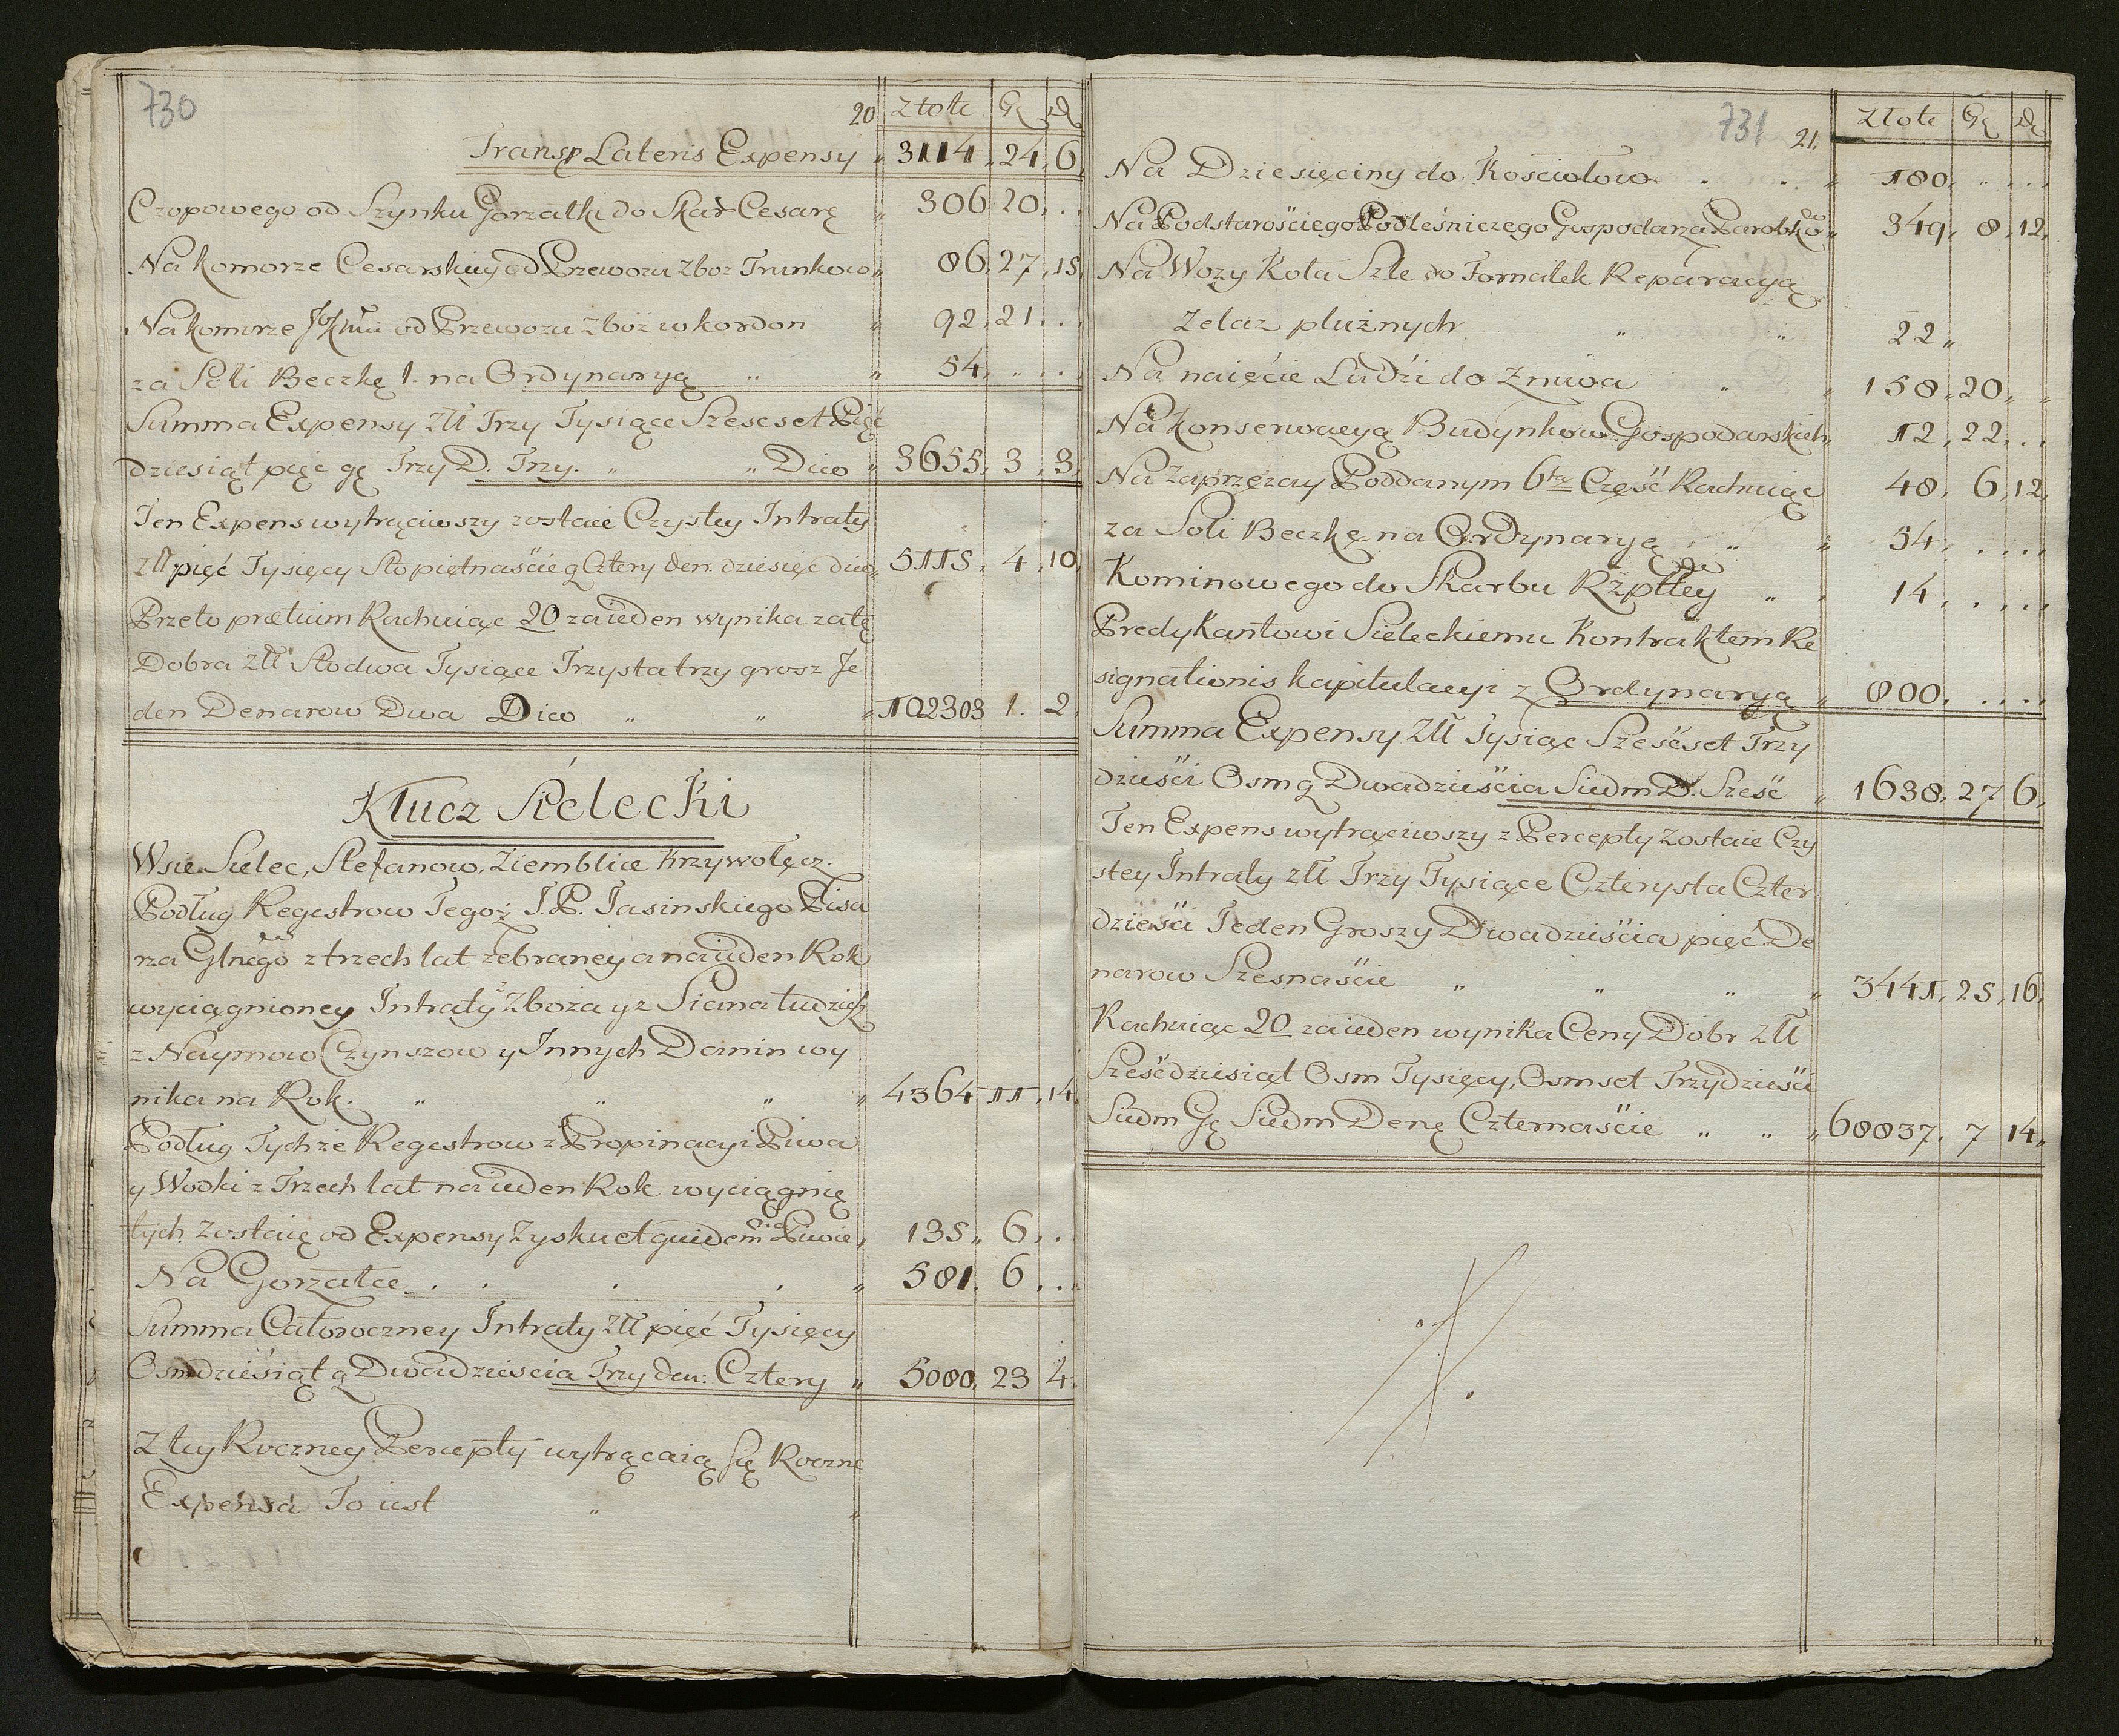 730
20 Złote Gr D
Transp Lateris Expensy " 3114 " 24 " 6
Czopowego od Szynku Gorzałki do Skar Cesarg " 306 20 . .
Na Komorze Cesarskiey od Przewozu Zboz Trunkow " 86 . 27 . 15
Na komorze od Przewozu Zboż w kordon " 92 . 21 . . .
za Soli Beczkę 1. na Ordynaryą " " 54 . " . . .
Summa Expensy Złł Trzy Tysiące Szescset Pięć
dziesiąt pięć gę Trzy D. Trzy. " " Dico " 3655 . 3 . 3
Ten Expens wytrąciwszy zostaie Czystey Intraty
Złł pięć Tysięcy Sto piętnaście g Cztery den: dziesięć dico " 5115 . 4 . 10
Przeto pretium Rachuiąc 20 za ieden wynika za tę
Dobra Złł Sto dwa Tysiące Trzysta trzy grosz Je
den Denarow Dwa Dico " " " 102303 1 . 2
Klucz Sielecki
Wsie Sielec, Stefanow, Ziemblice Krzywołęcz.
Podług Regestrow Tegoż J.P. Jasinskiego Pisa
rza Głnego z trzech lat zebraney a na ieden Rok
wyciągnioney Intraty z Zboża y z Siana tudzież
z Naymow Czynszow y Innych Danin wy
nika na Rok. " " " " 4364 . 11 . 14
Podług Tychże Regestrow z Propinacyi Piwa
y Wodki z Trzech lat na ieden Rok wyciągnię
tych zostaię od Expensy Zysku et quidem na Piwie " 135 " 6 . .
Na Gorzałce . . . . " 581 . 6 . . .
Summa Całoroczney Intraty Złł pięć Tysięcy
Osmdziesiąt g Dwadziescia Trzy den: Cztery " 5080 . 23 4
Z tey Roczney Percepty wytrącaią się Roczne
Expensa To iest " "
731
21. Złote Gr D
Na Dziesięciny do Kościołow . . " 180 . . . . .
Na Podstarościego Podleśniczego Gospodarza Parobkó " 349 . 8 . 12
Na Wozy Koła Szle do Fornalek Reparacyą
Zelaz płużnych " " 22 "
Na naięcie Ludźi do Zniwa " " 158 . 20 " "
Na Konserwacyą Budynkow Gospodarskich " 12 . 22 . . .
Na Zaprzęzay Poddanym 6tą Część Rachuiąc 48 . 6 . 12
za Soli Beczkę na Ordynaryą " " 54 . . . . .
Kominowego do Skarbu Rzpltey " " 14 . . . . .
Predykantowi Sieleckiemu Kontraktem Re
signationis kapitulacyi z Ordynaryą " 800 . . . . .
Summa Expensy Złł Tysiąc Sześćset Trzy
dzieści Osm g Dwadzieścia Siedm D. Sześć " 1638 . 27 6
Ten Expens wytrąciwszy z Percepty zostaie Czy
stey Intraty złł Trzy Tysiące Czterysta Czter
dzieści Jeden Groszy Dwadzieścia pięć De
narow Szesnaście " " " " 3441 . 25 . 16
Rachuiąc 20 za ieden wynika Ceny Dobr złł
Sześćdziesiąt Osm Tysięcy, Osmset Trzydzieści
Siedm Gę Siedm Denę Czternaście " " " 68837 . 7 14 "